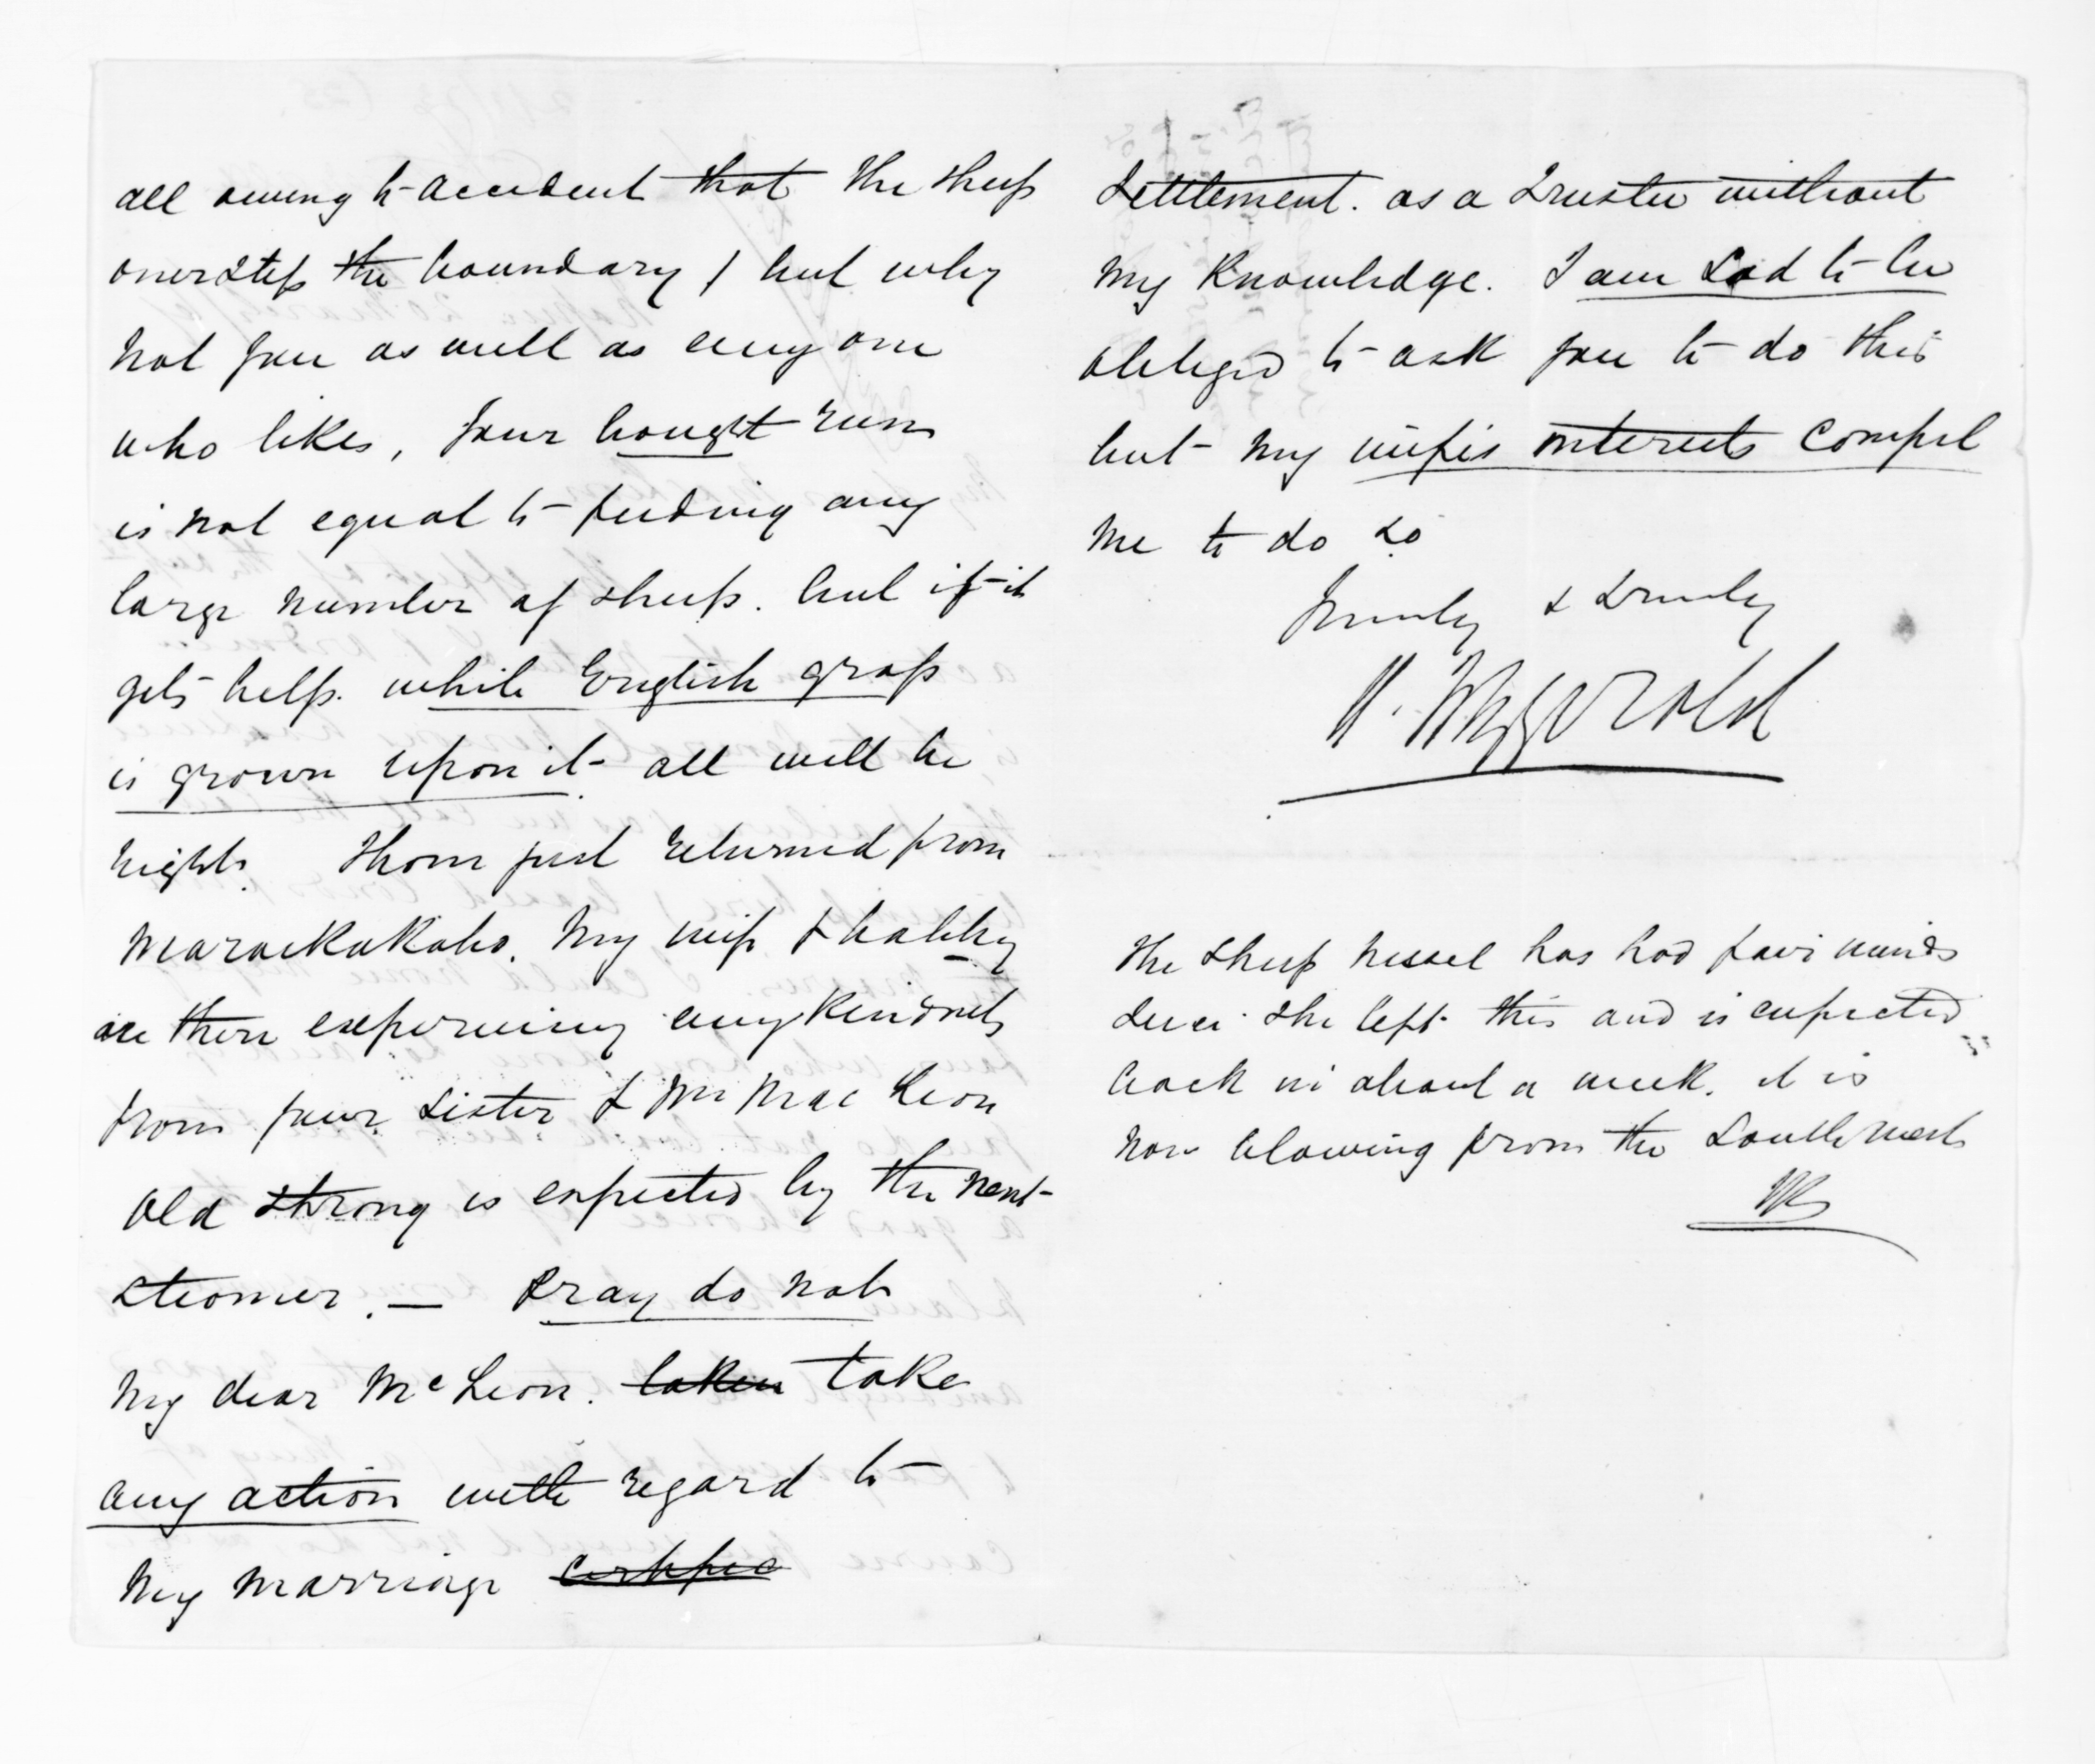 all owing to accident that the sheep
overstep the boundary / but why
not you as well as any one
who likes, your bought run
is not equal to feeding any
large number of sheep. but if it
gets help. while English grass
is grown upon it all will be
right. I have just returned from
Maraekakaho. My wife & babby
are there experiencing every kindness
from your sister & Mr MacLean
old Strong is expected by the next
steamer. — Pray do not
My dear McLean. taken take
any action with regard to
My marriage certifica
Settlement. as a Trustee without
My Knowledge. I am sad to be
obliged to ask you to do this
but my wifes interests compel
me to do so
Yours & Truly
FitzGerald
The sheep vessel has had fair winds
since she left this and is expected
back in about a week. it is
now blowing from the South West